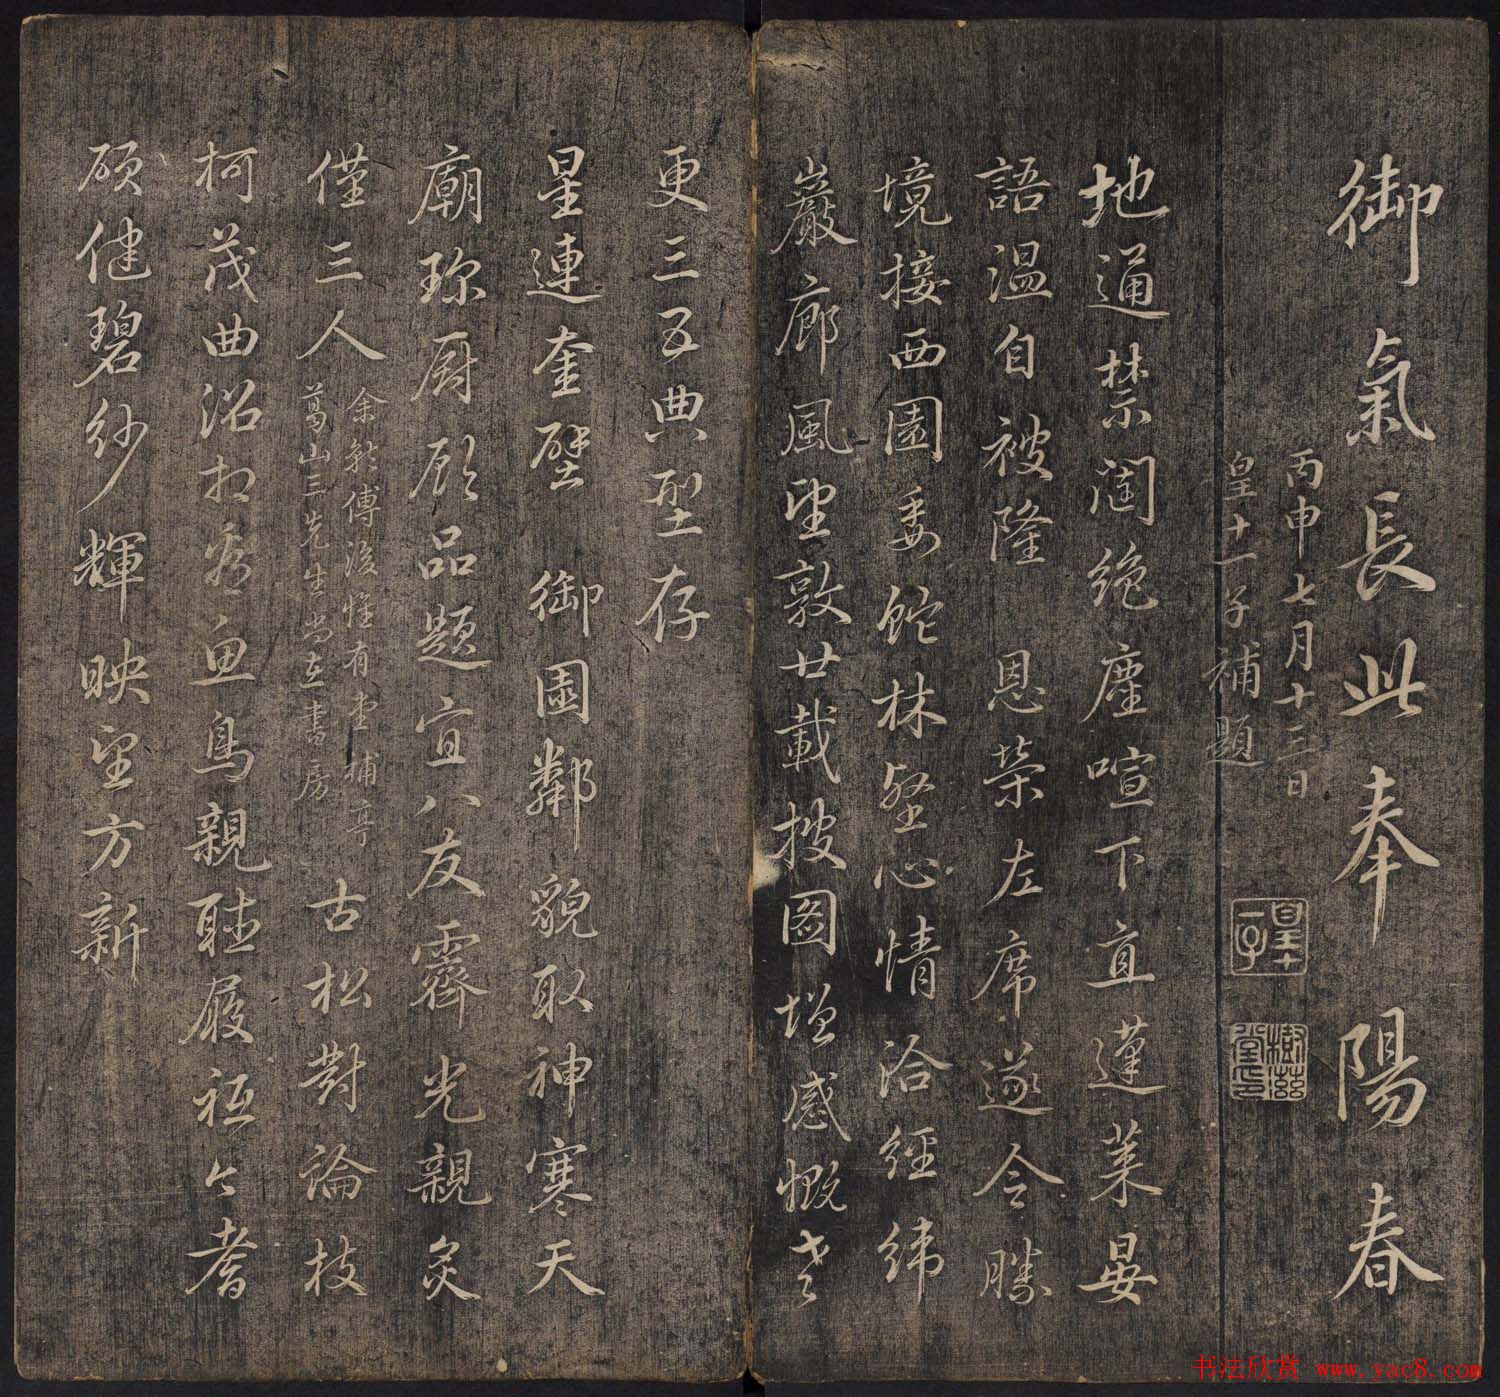 御氣長此奉陽春
丙申七月十三日
皇十一子補題
皇十一子
樹滋堂印
地通禁闥絶塵喧下直蓬萊晏
語溫自被隆 恩榮左席遂令勝
境接西園委蛇林壑心情洽經緯
巖廊風望敦廿載披圖增感慨老
更三五典型存
星連奎壁 御園鄰貌取神寒天
廟珍厨顧品題宜八友霽光親炙
僅三人
余師傅後惟有 補亭
葛山三先生尚在書房
古松對論枝
柯茂曲沼相 魚鳥親聽履祗今耆
碩健碧紗輝映望方新
书法欣赏 www.yac8.com